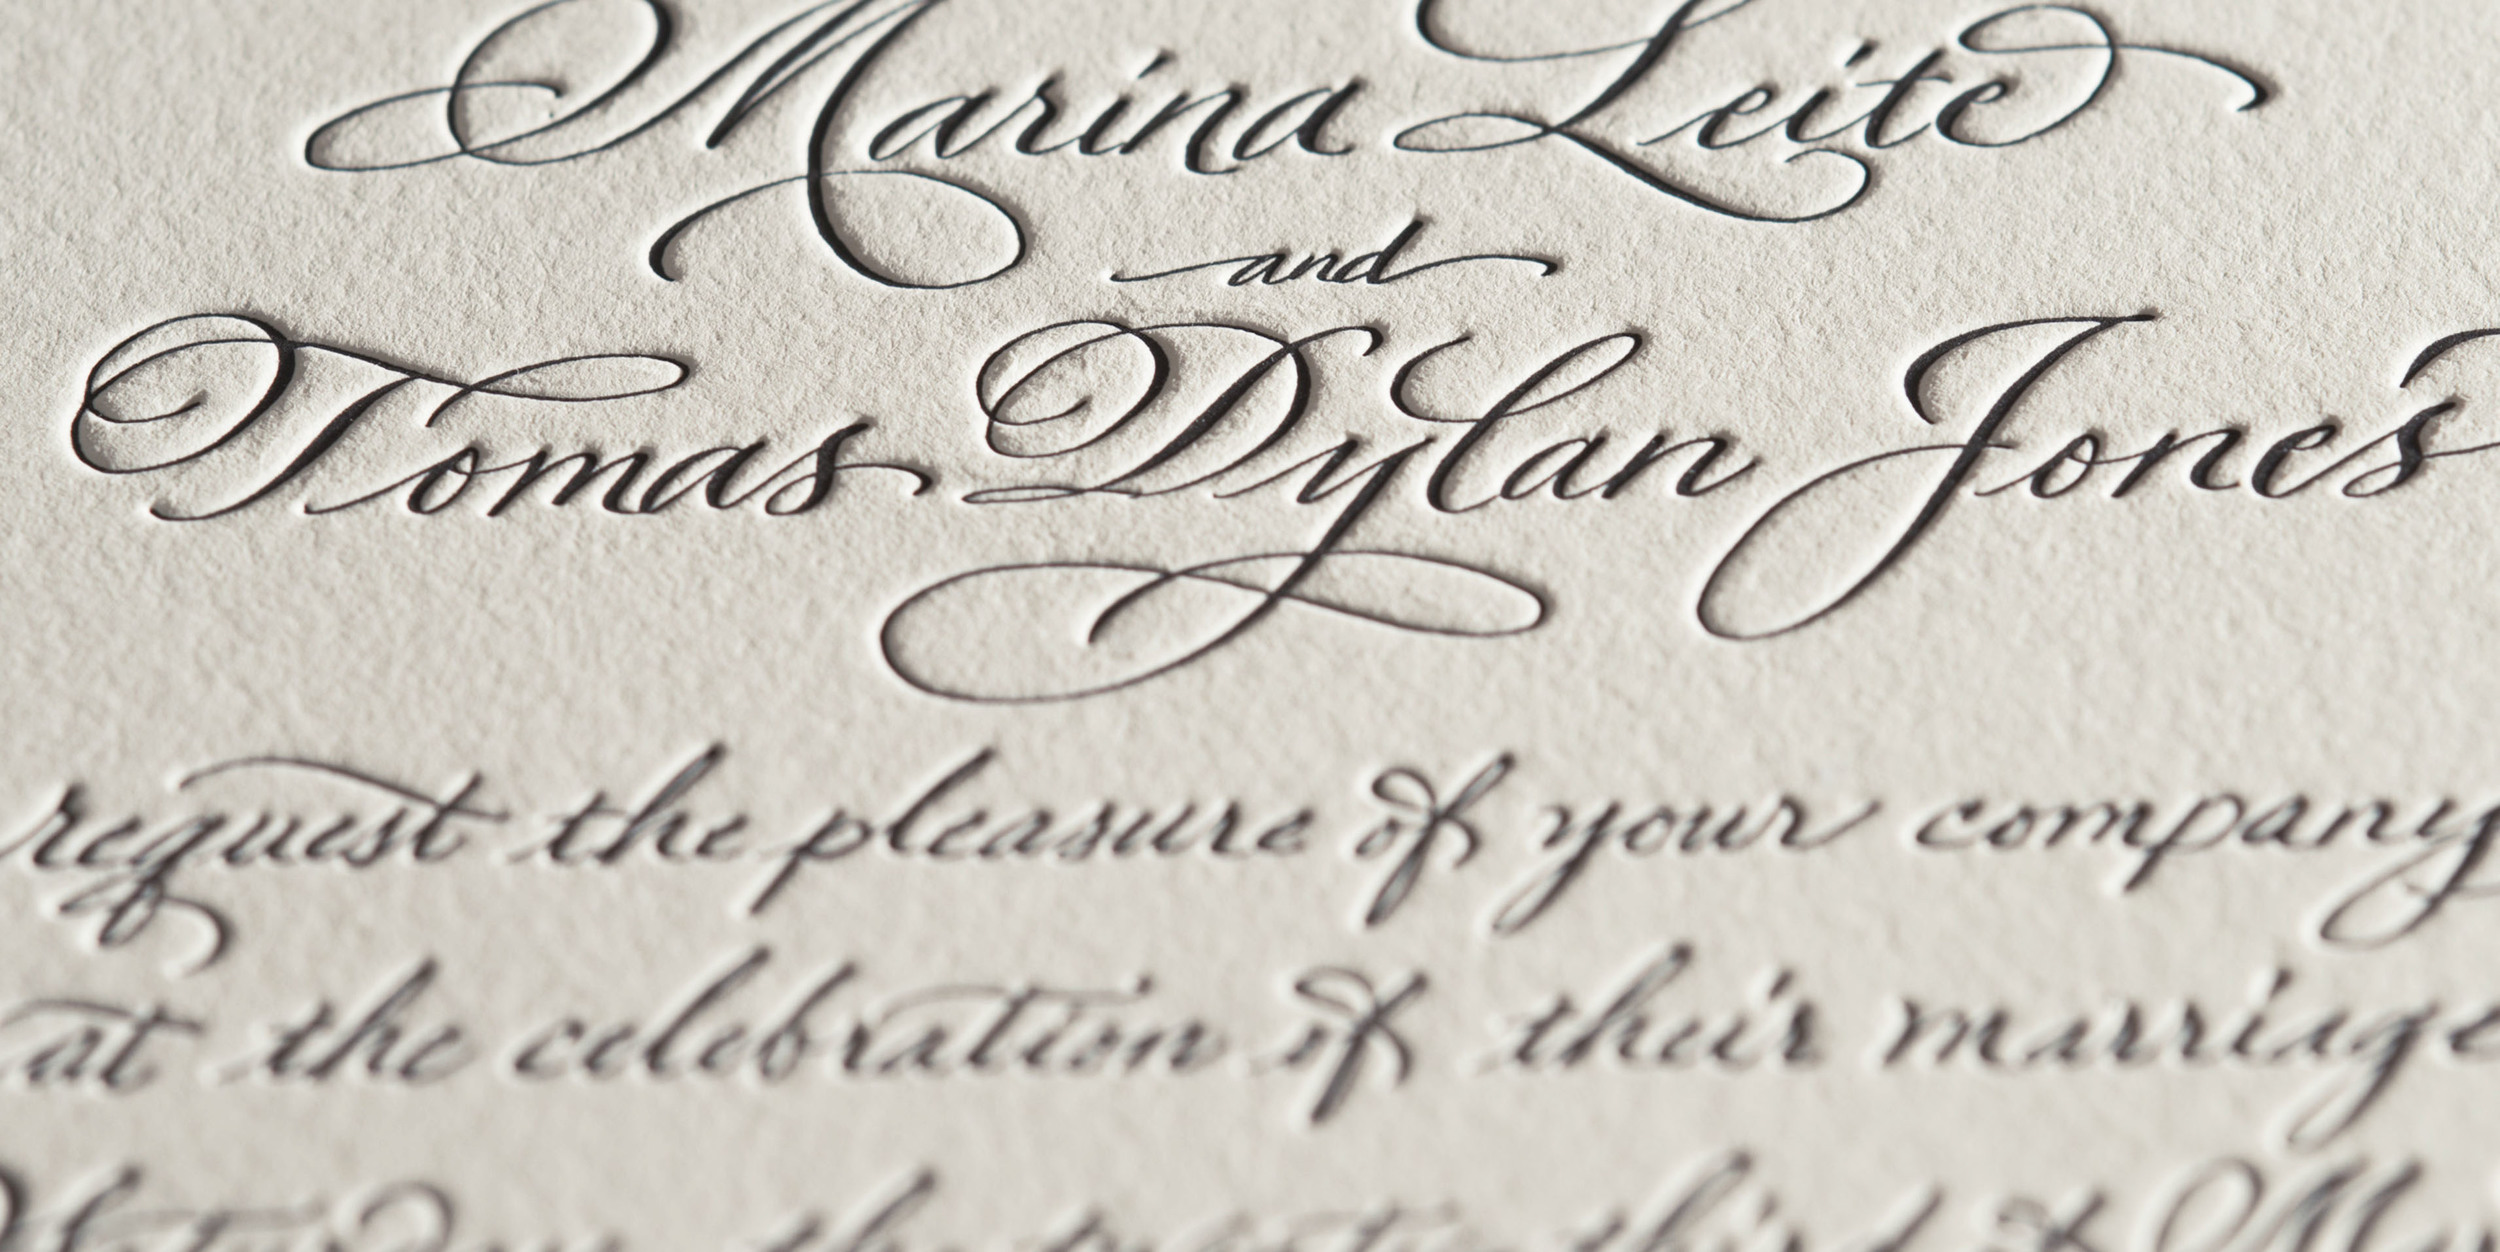 Marina Leite
and
Tomas Dylan Jones
request the pleasure of your company
at the celebration of their marriage
the third of